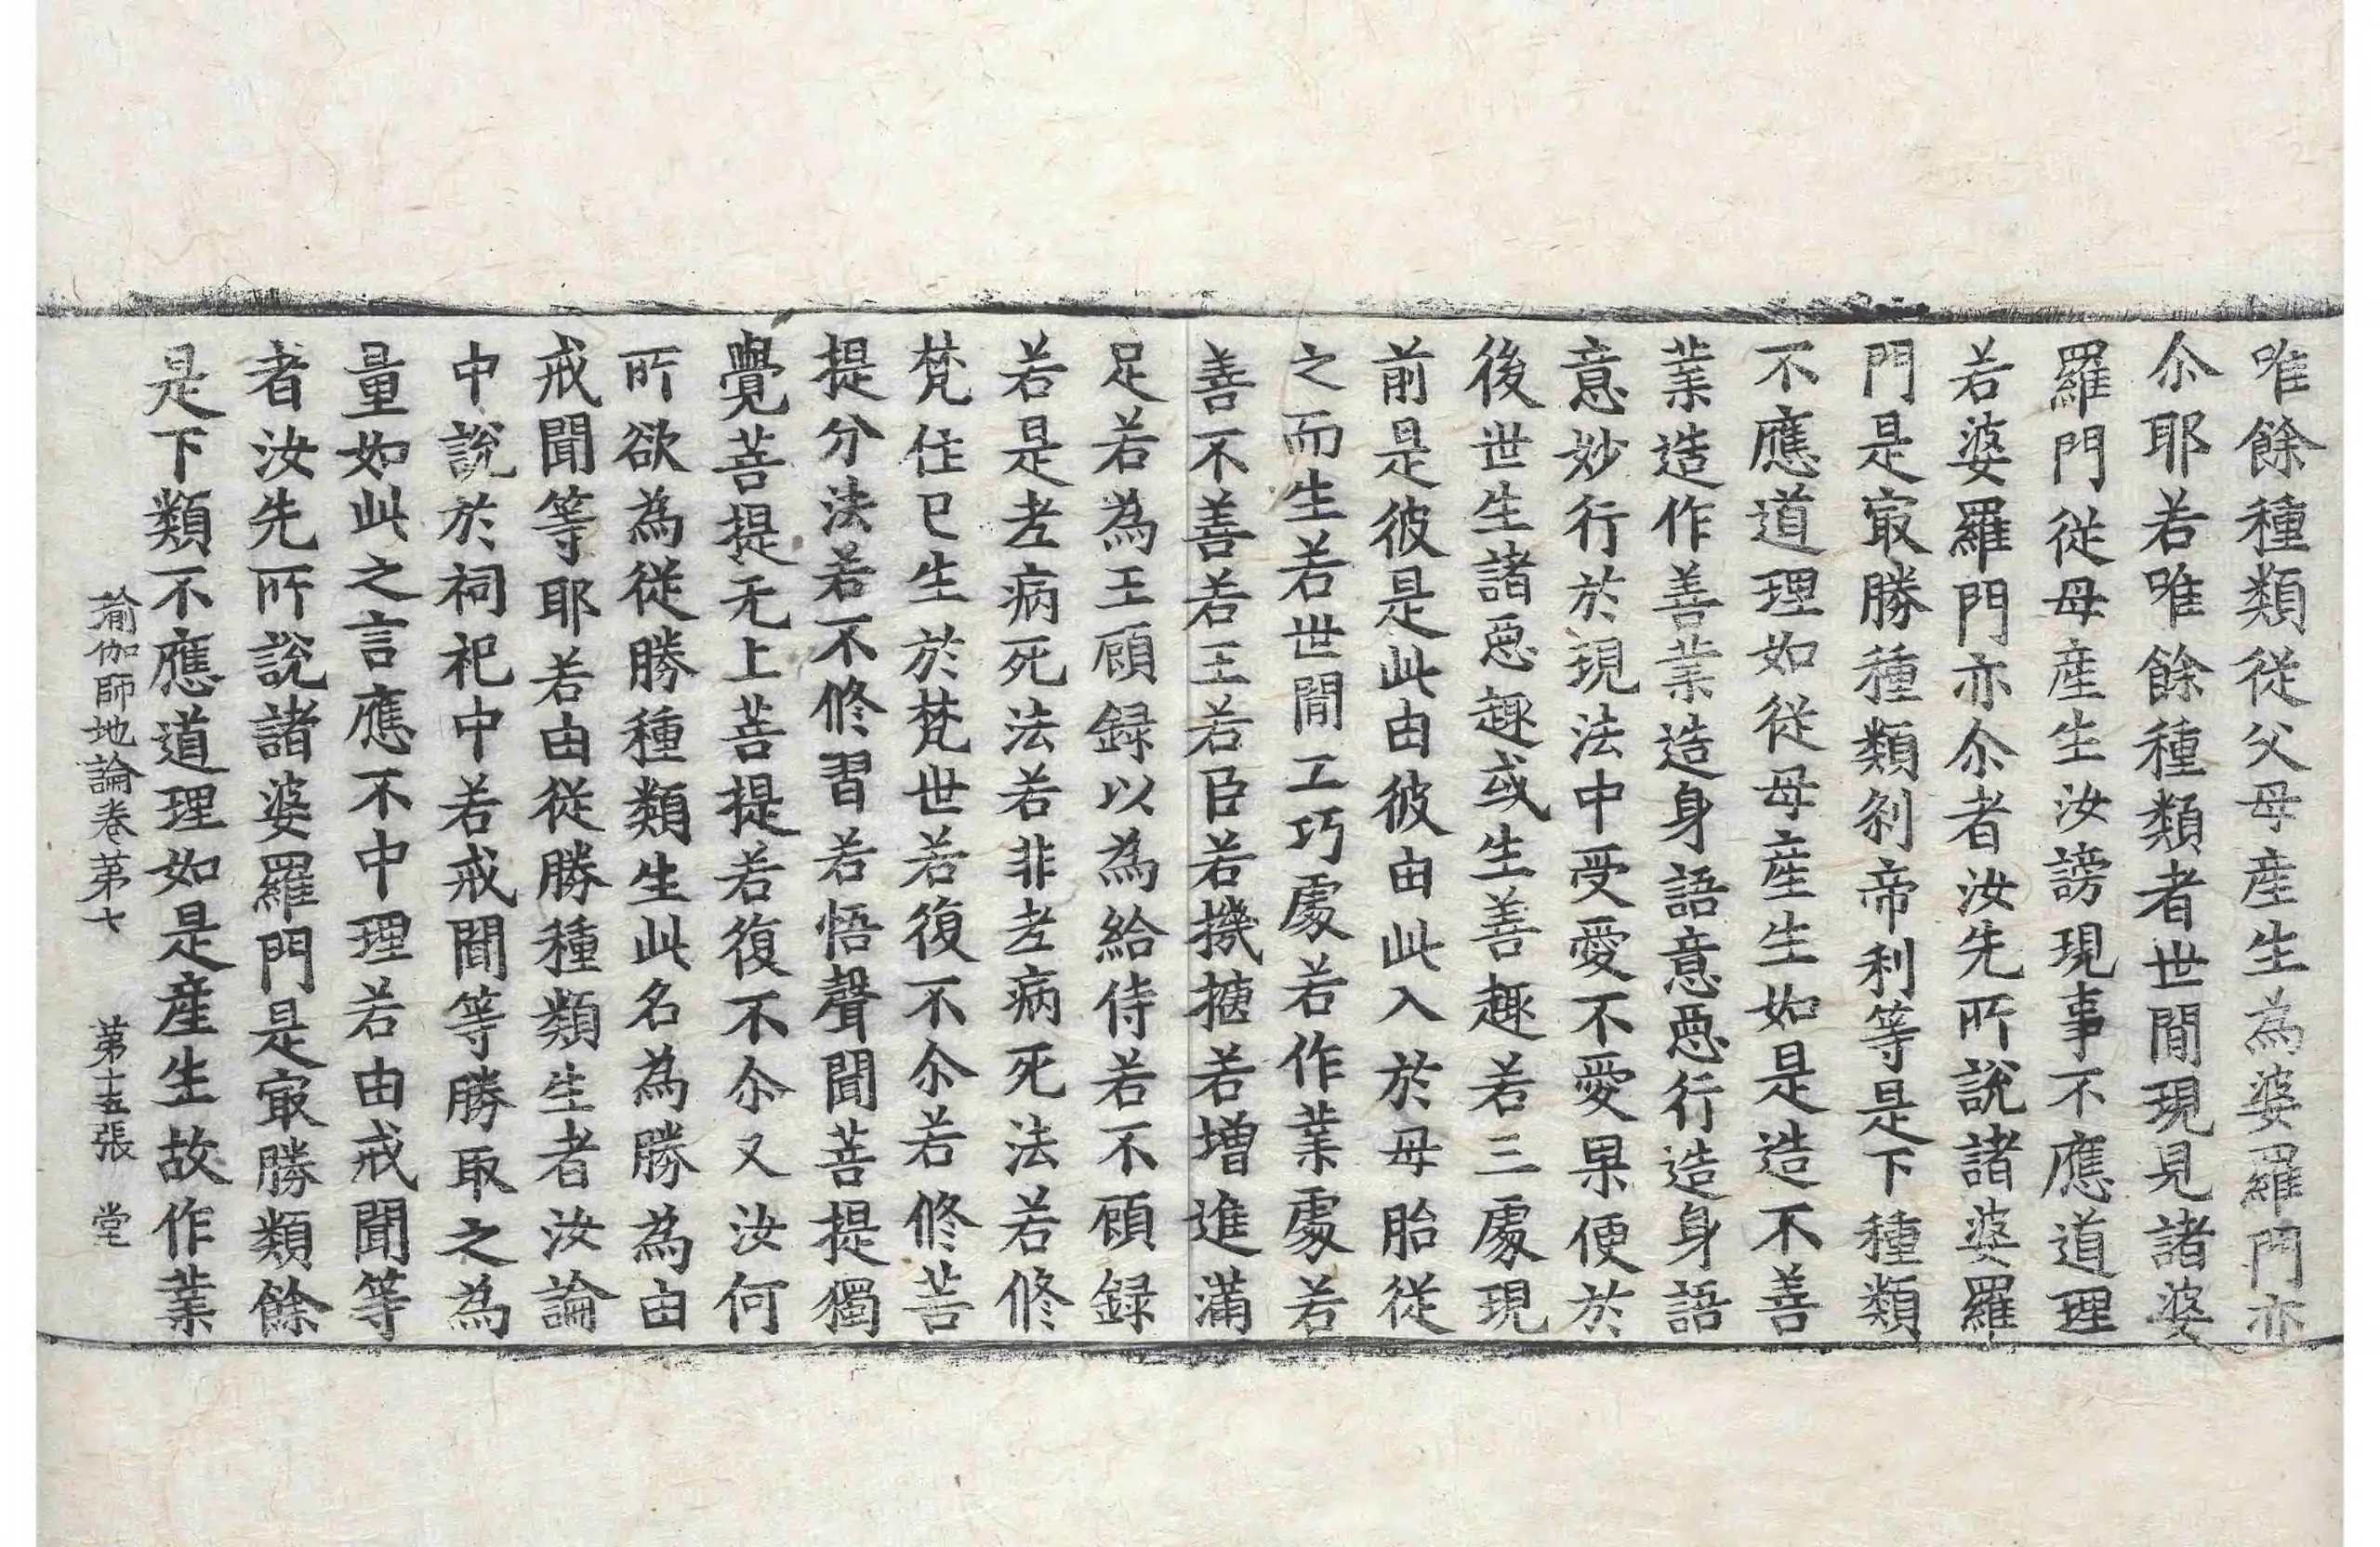 唯餘種類從父母産生為婆羅門亦
尒耶若唯餘種類者世閒現見諸婆
羅門從母産生汝謗現事不應道理
若婆羅門亦尒者汝先所說諸婆羅
門是㝡勝種類刹帝利等是下種類
不應道理如從母産生如是造不善
業造作善業造身語意惡行造身語
意妙行於現法中受愛不愛果便於
後世生諸惡趣或生善趣若三處現
前是彼是此由彼由此入於母胎從
之而生若世閒工巧處若作業處若
善不善若王若臣若機揵若增進滿
足若為王顧録以為給侍若不顧録
若是老病死法若非老病死法若修
梵住已生於梵世若復不尒若修菩
提分法若不修習若悟聲聞菩提獨
覺菩提无上菩提若復不尒又汝何
所欲為從勝種類生此名為勝為由
戒聞等耶若由從勝種類生者汝論
中說於祠祀中若戒聞等勝取之為
量如此之言應不中理若由戒聞等
者汝先所說諸婆羅門是㝡勝類餘
是下類不應道理如是産生故作業
瑜伽師地論卷第七　第十五張　堂